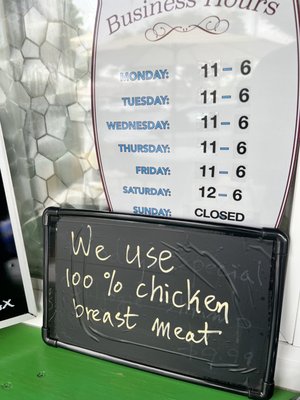 Business Hours
MONDAY: 11-6
TUESDAY: 11-6
WEDNESDAY: 11-6
THURSDAY: 11-6
FRIDAY: 11-6
SATURDAY: 12-6
SUNDAY: CLOSED
We use
100% chicken
breast meat